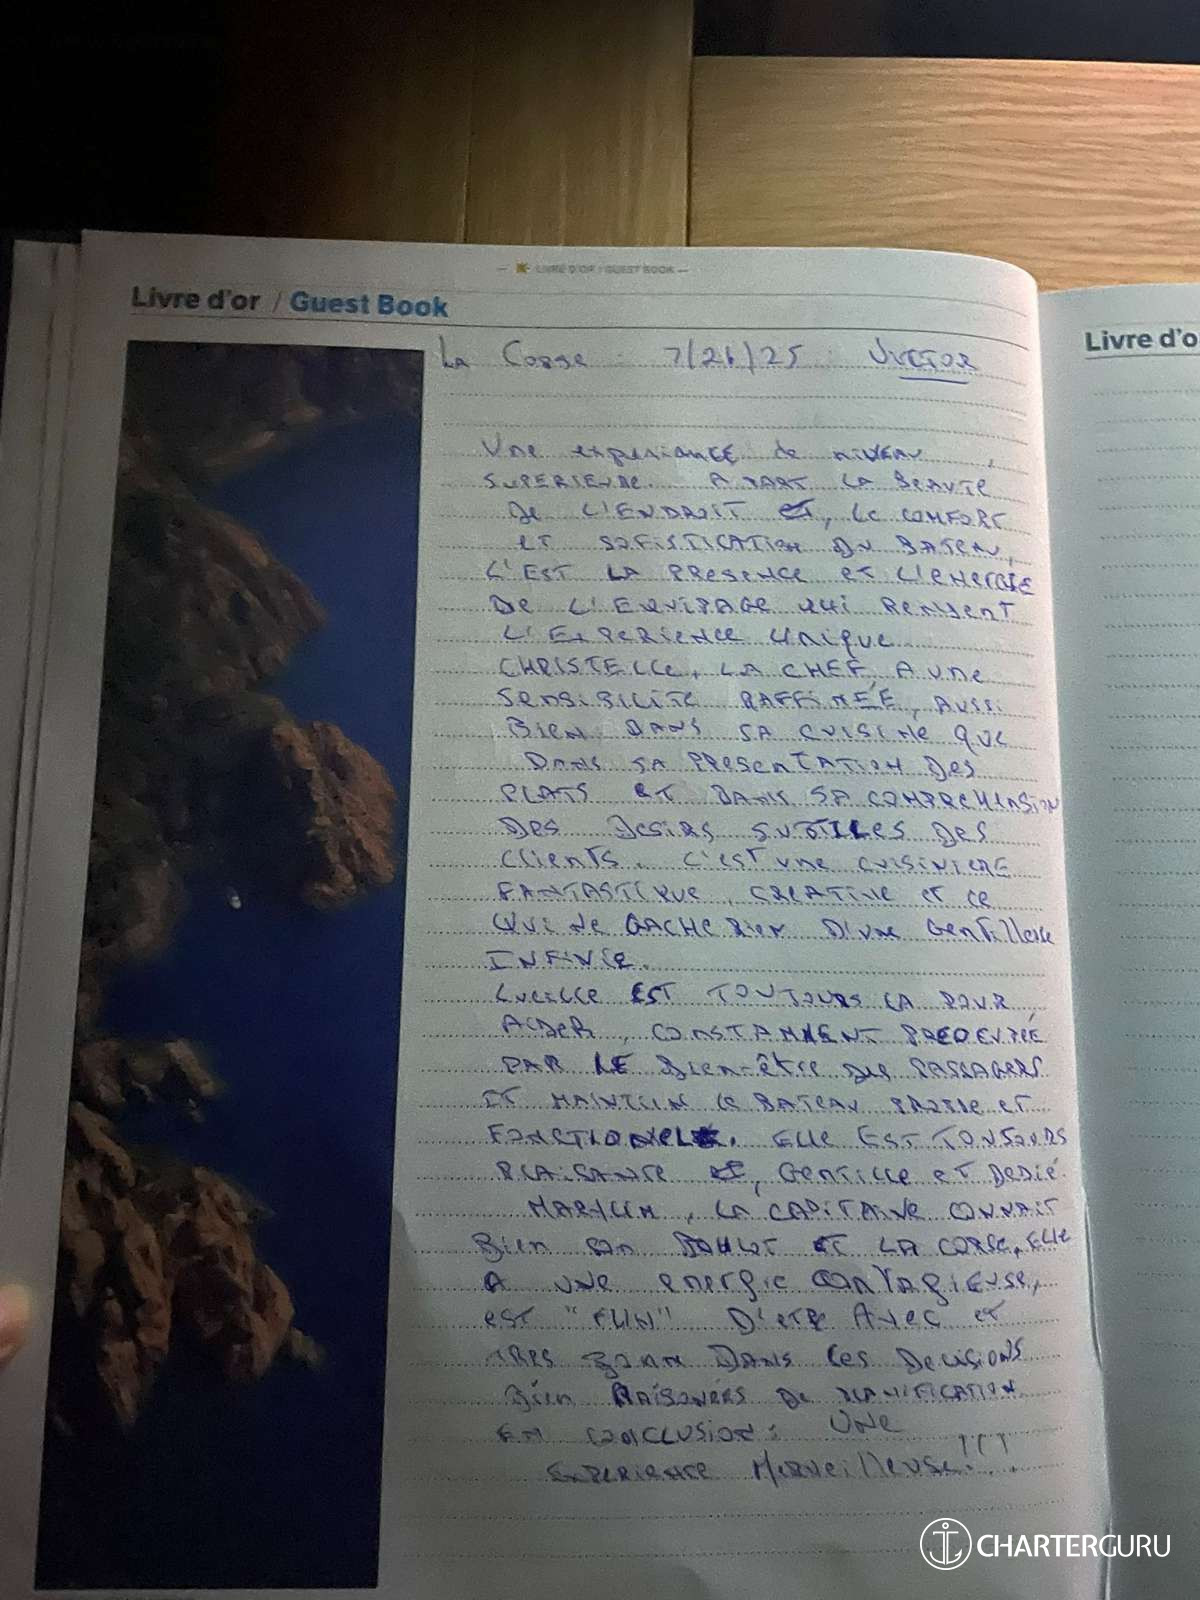 LIVRE D'OR / GUEST BOOK
Livre d'or / Guest Book
Livre d'o
La Corse : 7/26/25 :
Une experiance de niveau
SUPERIEURE. A PART LA BEAUTE
De L'ENDROIT, le COMFORT
ET SOFISTICATION DU BATEAU,
C'EST LA PRESENCE ET L'ENERGIE
DE L'EQUIPAGE QUI RENDENT
L'EXPERIENCE UNIQUE
CHRISTELLE, LA CHEF, A UNE
SENSIBILITE RAFFINÉE, AUSSI
BIEN DANS SA CUISINE QUE
DANS SA PRESENTATION DES
PLATS ET DANS SA COMPREHENSION
DES DESIRS SUBTILES DES
CLIENTS. C'EST UNE CUISINIERE
FANTASTIQUE, CREATIVE ET CE
QUI NE GACHE RIEN D'UNE GENTILLESSE
INFINIE.
LUCILLE EST TOUJOURS LA POUR
AIDER, CONSTAMMENT PREOCUPÉE
PAR LE BIEN-ÊTRE DES PASSAGERS
ET MAINTIEN LE BATEAU PROPRE ET
FONCTIONEL. ELLE EST TOUJOURS
PLAISANTE, GENTILLE ET DEDIÉ.
LA CAPITAINE CONNAIT
BIEN SON BOULOT ET LA CORSE, ELLE
A UNE energie CONTAGIEUSE,
EST "FUN" D'ETRE AVEC ET
TRES BONNE DANS CES DECISIONS
BIEN RAISONÉES DE PLANIFICATION
EN CONCLUSION : UNE
EXPERIENCE MERVEILLEUSE!!!
CHARTERGURU